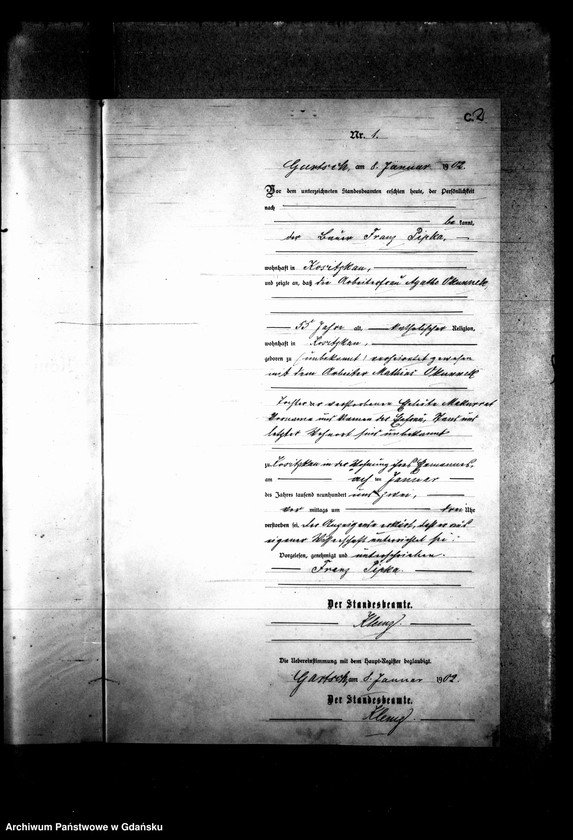 C.
Nr. 1.
Gartsch, am 8. Januar 1902.
Vor dem unterzeichneten Standesbeamten erschien heute, der Persönlichkeit
nach
be kannt,
der Bauer Franz Pipka,
wohnhaft in Kositzkau,
und zeigte an, daß die Arbeiterfrau Agathe
55 Jahre alt, katholischer Religion,
wohnhaft in
geboren zu (unbekannt) verheiratet gewesen
mit dem Arbeiter Mathias
Tochter der verstorbenen
Vorname und Namen des Haus und
letzter Wohnort sind unbekannt
zu in der Wohnung ihres Ehemannes,
am acht ten Januar
des Jahres tausend neunhundert und zwei,
vor mittags um drei Uhr
verstorben sei. Der Anzeigende erklärt, daß er aus
eigener Wissenschaft unterrichtet sei.
Vorgelesen, genehmigt und unterschrieben.
Franz Pipka.
Der Standesbeamte.
Die Uebereinstimmung mit dem Haupt-Register beglaubigt.
Gartsch, am 8. Januar 1902.
Der Standesbeamte.
Archiwum Państwowe w Gdańsku